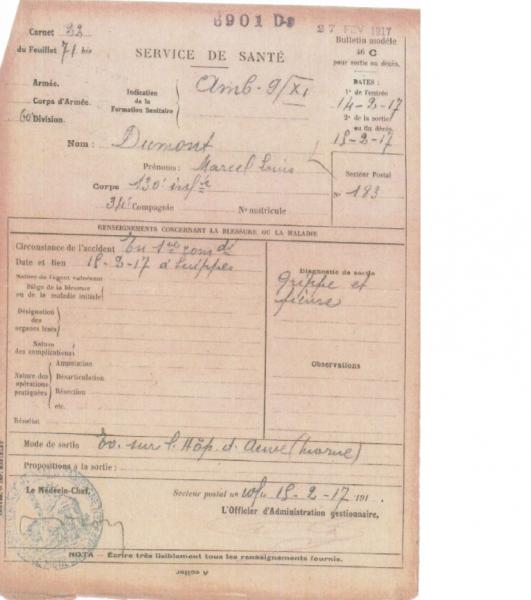 6901 Ds 27 FEV 1917
Carnet 22
du Feuillet 71 bis
Bulletin modèle
46 C
pour sortie ou décès.
SERVICE DE SANTÉ
DATES :
1° de l'entrée
14-2-17
2° de la sortie
ou du décès
15-2-17
Armée.
Corps d'Armée.
60 Division.
Indication
de la
Formation Sanitaire
Amb. 9/XI
Nom : Dumont
Prénoms : Marcel Louis
Corps 130e infie
34e Compagnie N° matricule
Secteur Postal
N° 183
RENSEIGNEMENTS CONCERNANT LA BLESSURE OU LA MALADIE
Circonstance de l'accident En
Date et lieu 15-2-17 à Suippes
Nature de l'agent vulnérant
Siège de la blessure
ou de la maladie initiale
Désignation
des
organes lésés
Nature
des complications
Nature des
opérations
pratiquées
Amputation
Désarticulation
Résection
etc.
Résultat
Diagnostic de sortie
grippe et
fièvre
Observations
Mode de sortie Ev. sur l'Hôp. d. (Marne)
Propositions à la sortie :
Le Médecin-Chef,
Secteur postal n° 15-2-17 191
L'Officier d'Administration gestionnaire,
NOTA — Écrire très lisiblement tous les renseignements fournis.
A coller